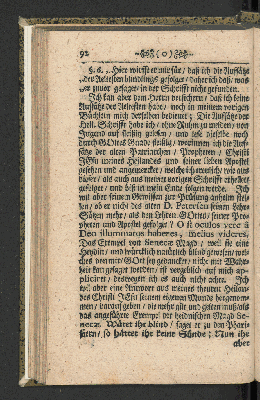 92 ( o )
§. 6. „Hier wirfft er mir für / daß ich die Auffsätz
„der Aeltesten blindlings gefolget / daher ich daß / was
„er zuvor gesaget / in der Schrifft nicht gefunden.
Ich kan aber dem Herrn versichern / daß ich keine
Auffsätz der Aeltesten habe / noch in meinem vorigen
Büchlein mich derselben bedienet; Die Auffsätze der
Heil. Schrifft habe ich / ohne Ruhm zu melden / von
Jugend auf fleißig gelesen / und lese dieselbe noch
durch GOttes Gnade fleißig / worinnen ich die Auff-
sätze der alten Patriarchen / Propheten / Christi
JEsu meines Heilandes und seiner lieben Apostel
gesehen und angemercket / welche ich
als auch aus meinen vorigen Schrifft erhellet
gefolget / und biß in mein Ende folgen werde. Ich
wil aber seinem Gewissen zur Prüfung anheim stel-
len / ob er nicht des Herrn D. Petersen seinen Lehr-
Sätzen mehr / als den Lehren GOttes / seiner Pro-
pheten und Apostel gefolget / O si oculos vere à
Deo illuminatos haberet, melius videret.
Das Exempel von Senecæ Magd / weil sie eine
Heydin / und würcklich natürlich blind gewesen / wel-
ches von mir / GOtt sey gedancket / nicht mit Wahr-
heit kan gesaget werden / ist vergeblich auf mich ap-
pliciret / deswegen ich es auch nicht achte. Ich
wil aber eine Antwort aus meines theuren Heilan-
des Christi JEsu seinem eigenem Munde hergenom-
men / darauf geben / die mehr gilt und gelten muß / als
das angeführte Exempel der heidnischen Magd Se-
necæ. Wäret ihr blind / saget er zu den Phari-
säern / so hättet ihr keine Sünde; Nun ihr
aber